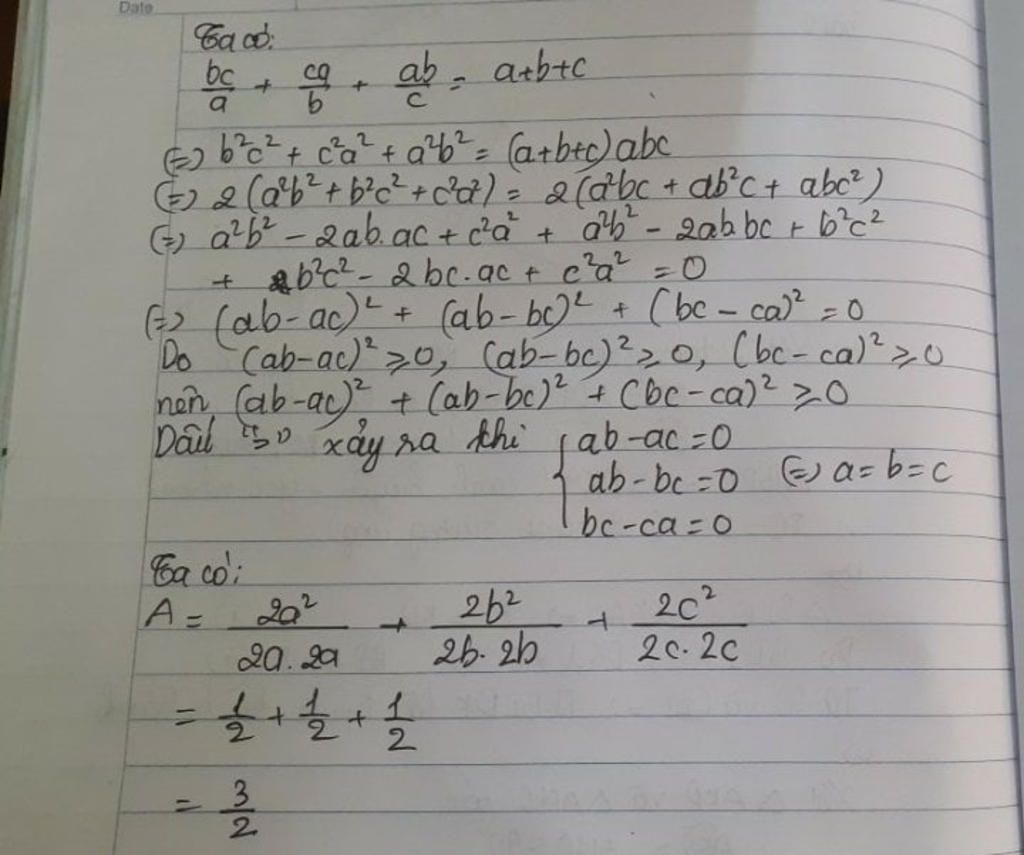 Date
Ta có:
bc/a + ca/b + ab/c = a+b+c
(=) b²c² + c²a² + a²b² = (a+b+c)abc
(=) 2(a²b² + b²c² + c²a²) = 2(a²bc + ab²c + abc²)
(=) a²b² - 2ab.ac + c²a² + a²b² - 2ab bc + b²c²
+ b²c² - 2bc.ac + c²a² = 0
(=) (ab-ac)² + (ab-bc)² + (bc-ca)² = 0
Do (ab-ac)² ≥ 0, (ab-bc)² ≥ 0, (bc-ca)² ≥ 0
nên (ab-ac)² + (ab-bc)² + (bc-ca)² ≥ 0
Dấu "=" xảy ra khi { ab-ac=0
ab-bc=0 (=) a=b=c
bc-ca=0
Ta có:
A = 2a²/2a.2a + 2b²/2b.2b + 2c²/2c.2c
= 1/2 + 1/2 + 1/2
= 3/2